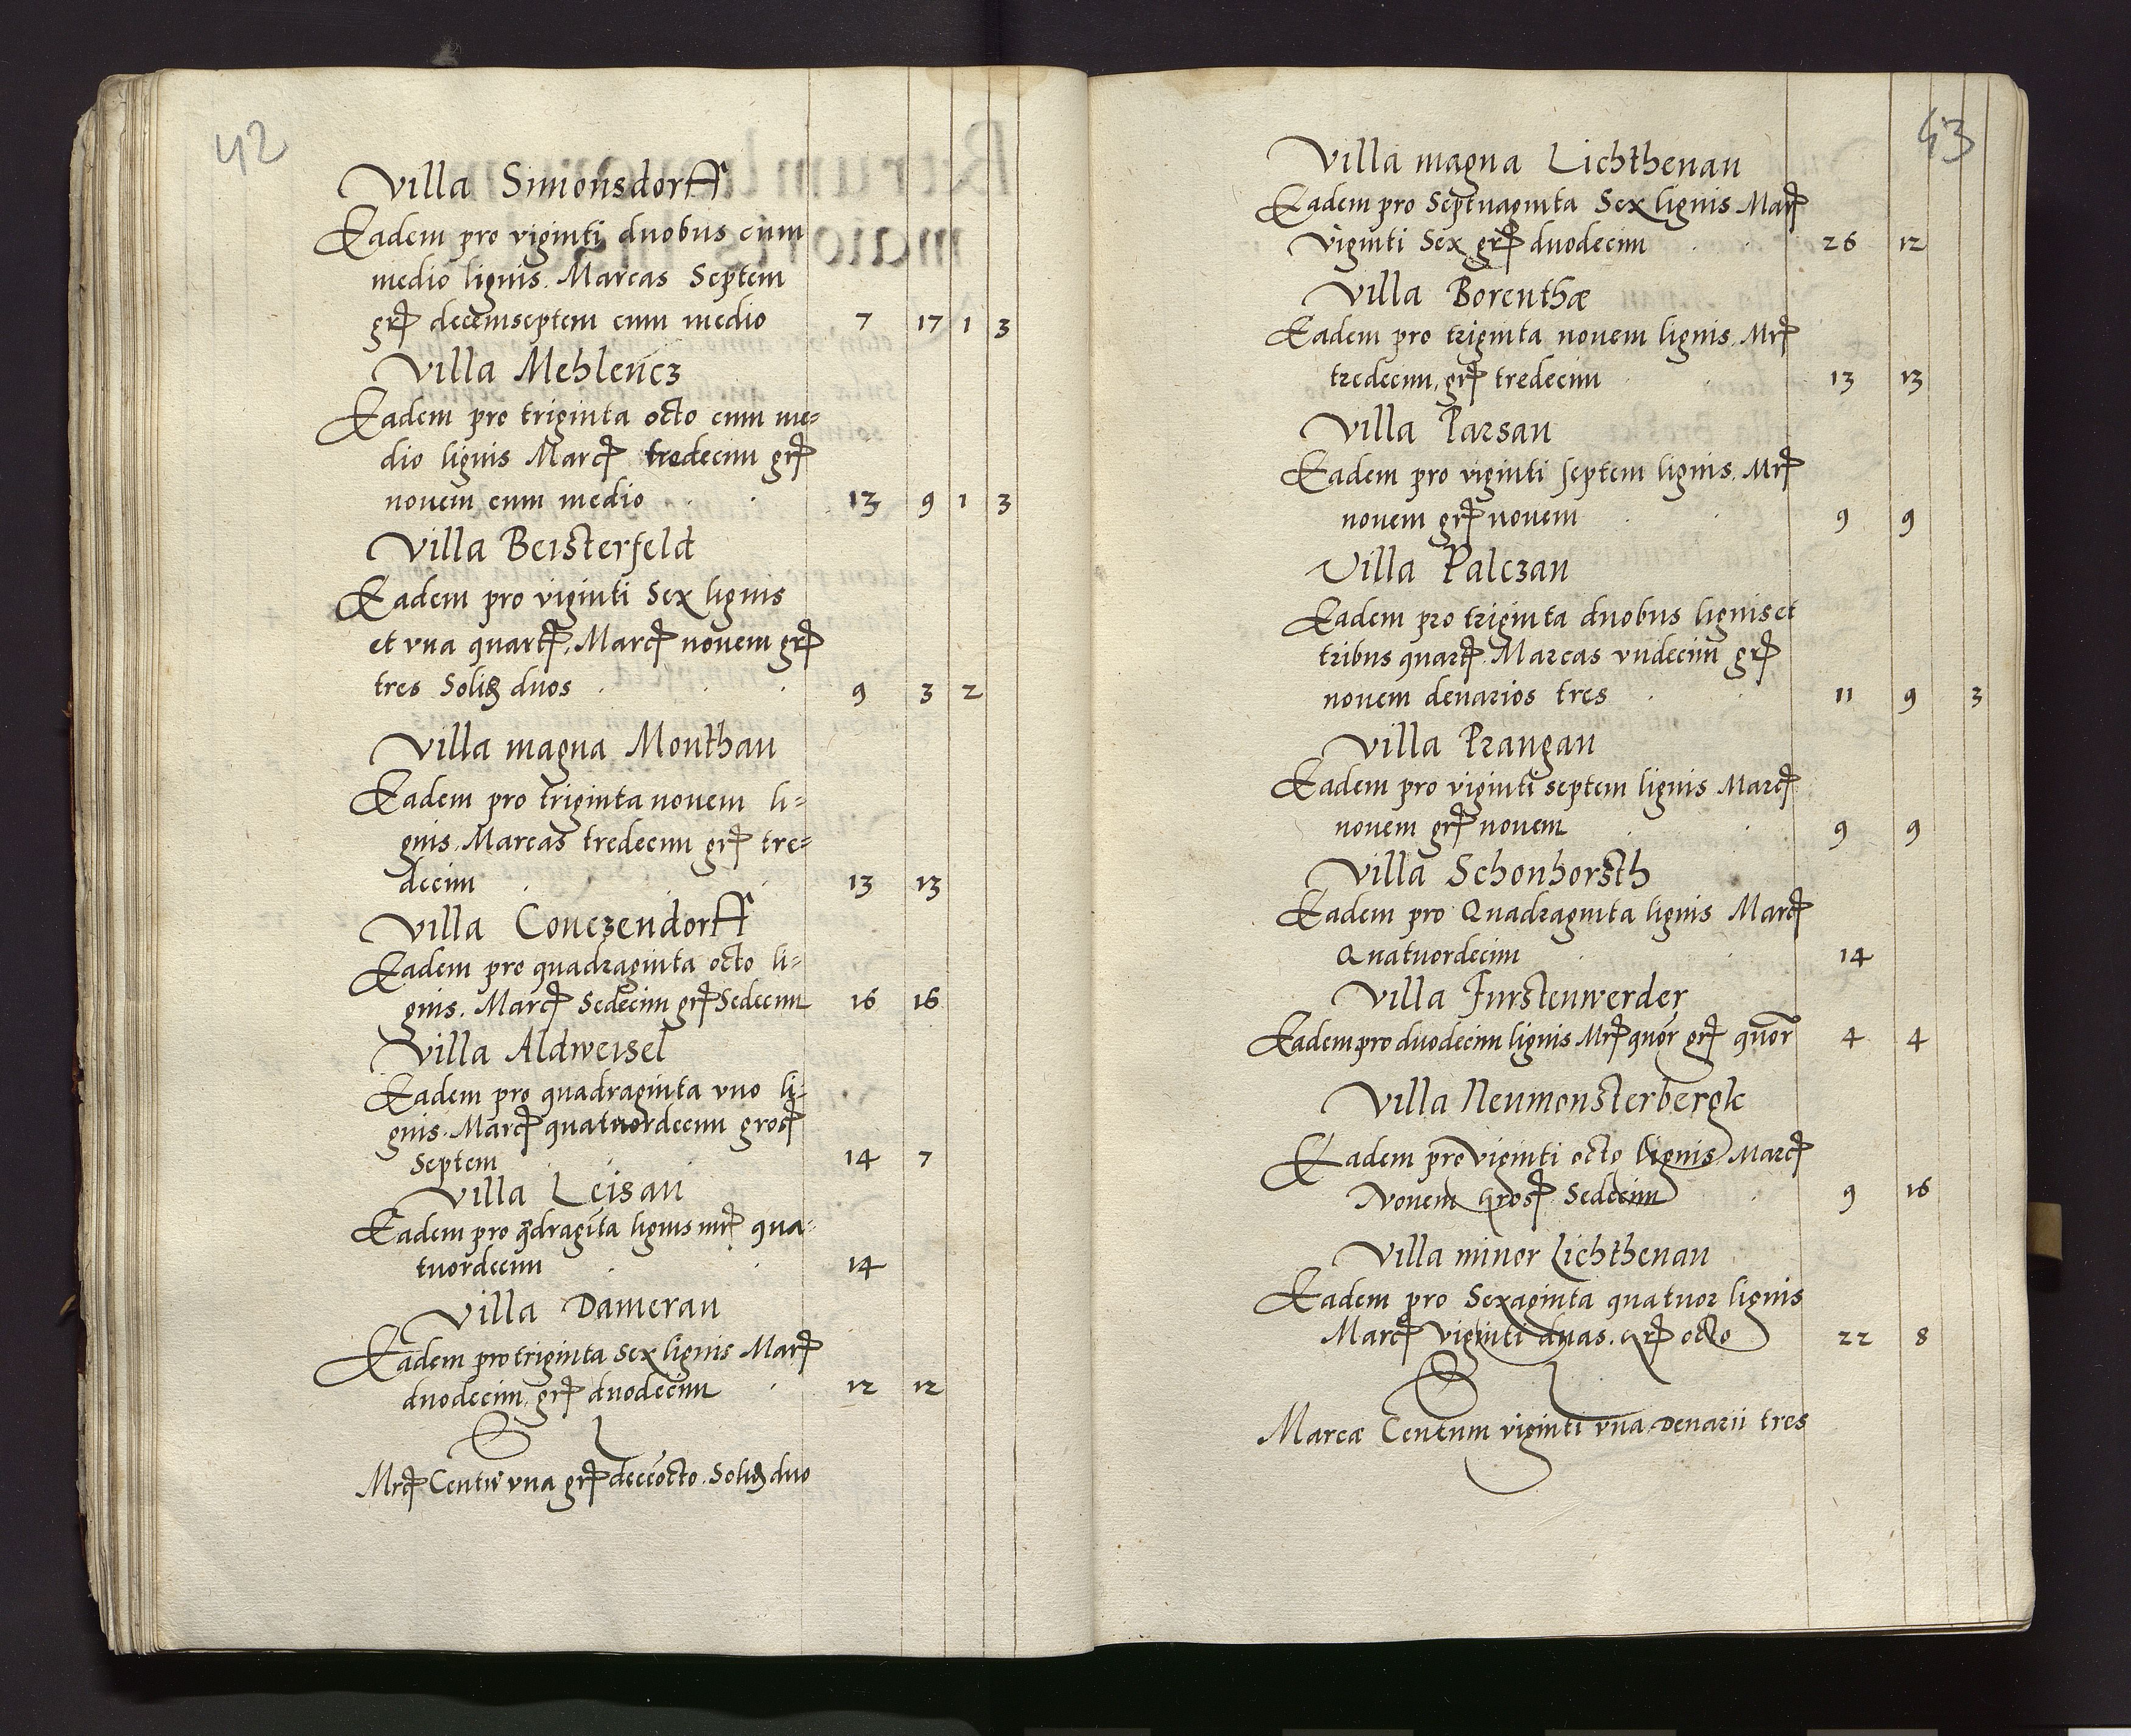 42
Villa Simonsdorff
Eadem pro viginti duobus cum
medio lignis. Marcas Septem
gr decemseptem cum medio 7 17 1 3
Villa Mehlencz
Eadem pro triginta octo cum me=
dio lignis Marc tredecim gr
novem cum medio 13 9 1 3
Villa Beisterfeld
Eadem pro viginti Sex lignis
et vna quart. Marc novem gr
tres Solid duos 9 3 2
Villa magna Monthau
Eadem pro triginta novem li=
gnis. Marcas tredecim gr tre=
decim 13 13
Villa Conczendorff
Eadem pro quadraginta octo li=
gnis. Marc Sedecim gr Sedecim 16 16
Villa Aldweisel
Eadem pro quadraginta vno li=
gnis. Marc quatuordecim gros
Septem 14 7
Villa Leisau
Eadem pro qdragita lignis mr qua=
tuordecim 14
Villa Damerau
Eadem pro triginta Sex lignis Mar
duodecim, gr duodecim 12 12
Mrc Centu vna gr deceocto. Solid duo
43
Villa magna Lichthenau
Eadem pro Septuaginta Sex lignis Mar
viginti Sex gr duodecim 26 12
Villa Borenthæ
Eadem pro triginta novem lignis. Mr
tredecim, gr tredecim 13 13
Villa Parsau
Eadem pro viginti septem lignis. Mr
novem gr novem 9 9
Villa Palczau
Eadem pro triginta duobus lignis et
tribus quart. Marcas vndecim gr
novem denarios tres 11 9 3
Villa Prangau
Eadem pro viginti septem lignis Marc
novem gr novem 9 9
Villa Schonhorsth
Eadem pro Quadraginta lignis Marc
Quatuordecim 14
Villa Furstenwerder
Eadem pro duodecim lignis Mr quor gr quor 4 4
Villa Neumonsterbergk
Eadem pro viginti octo lignis Marc
Novem gros Sedecim 9 16
Villa minor Lichthenau
Eadem pro Sexaginta quatuor lignis
Marc viginti duas. gr octo 22 8
Marcæ Centum viginti vna Denarii tres